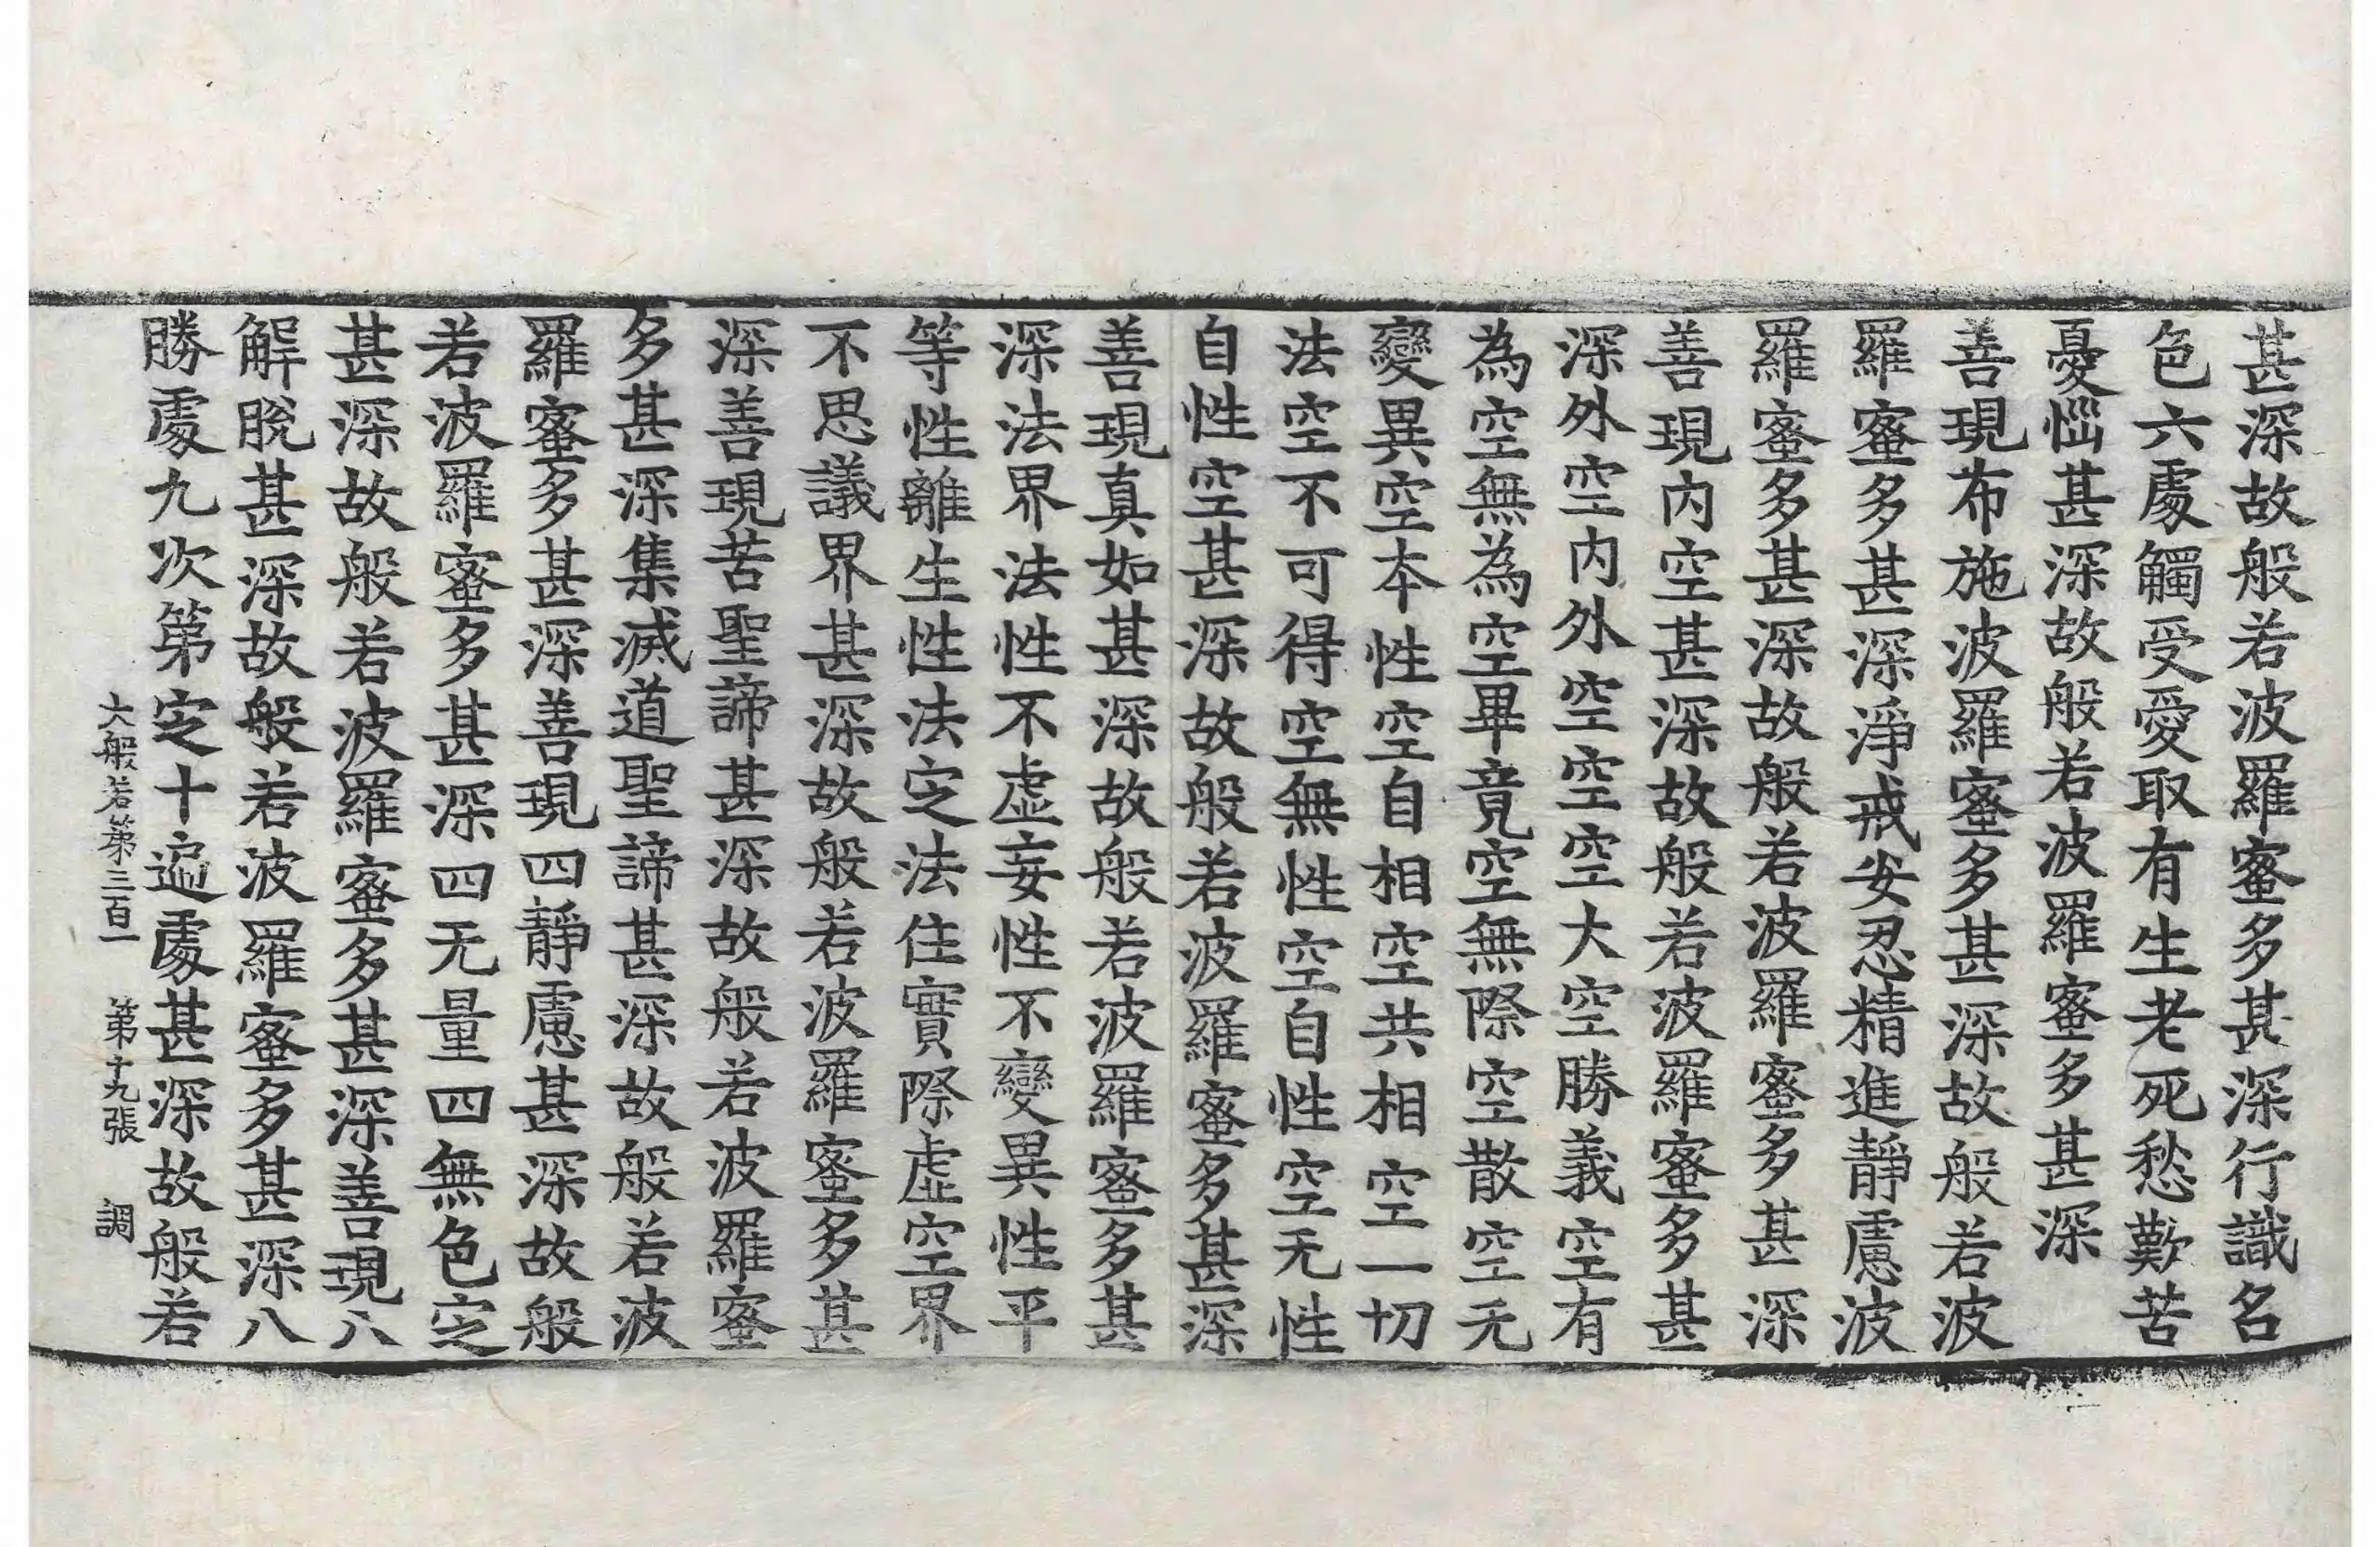 甚深故般若波羅蜜多甚深行識名
色六處觸受愛取有生老死愁歎苦
憂惱甚深故般若波羅蜜多甚深
善現布施波羅蜜多甚深故般若波
羅蜜多甚深淨戒安忍精進靜慮波
羅蜜多甚深故般若波羅蜜多甚深
善現内空甚深故般若波羅蜜多甚
深外空内外空空空大空勝義空有
為空無為空畢竟空無際空散空无
變異空本性空自相空共相空一切
法空不可得空無性空自性空无性
自性空甚深故般若波羅蜜多甚深
善現真如甚深故般若波羅蜜多甚
深法界法性不虛妄性不變異性平
等性離生性法定法住實際虛空界
不思議界甚深故般若波羅蜜多甚
深善現苦聖諦甚深故般若波羅蜜
多甚深集滅道聖諦甚深故般若波
羅蜜多甚深善現四靜慮甚深故般
若波羅蜜多甚深四无量四無色定
甚深故般若波羅蜜多甚深善現八
解脫甚深故般若波羅蜜多甚深八
勝處九次第定十遍處甚深故般若
大般若第三百一 第十九張 調